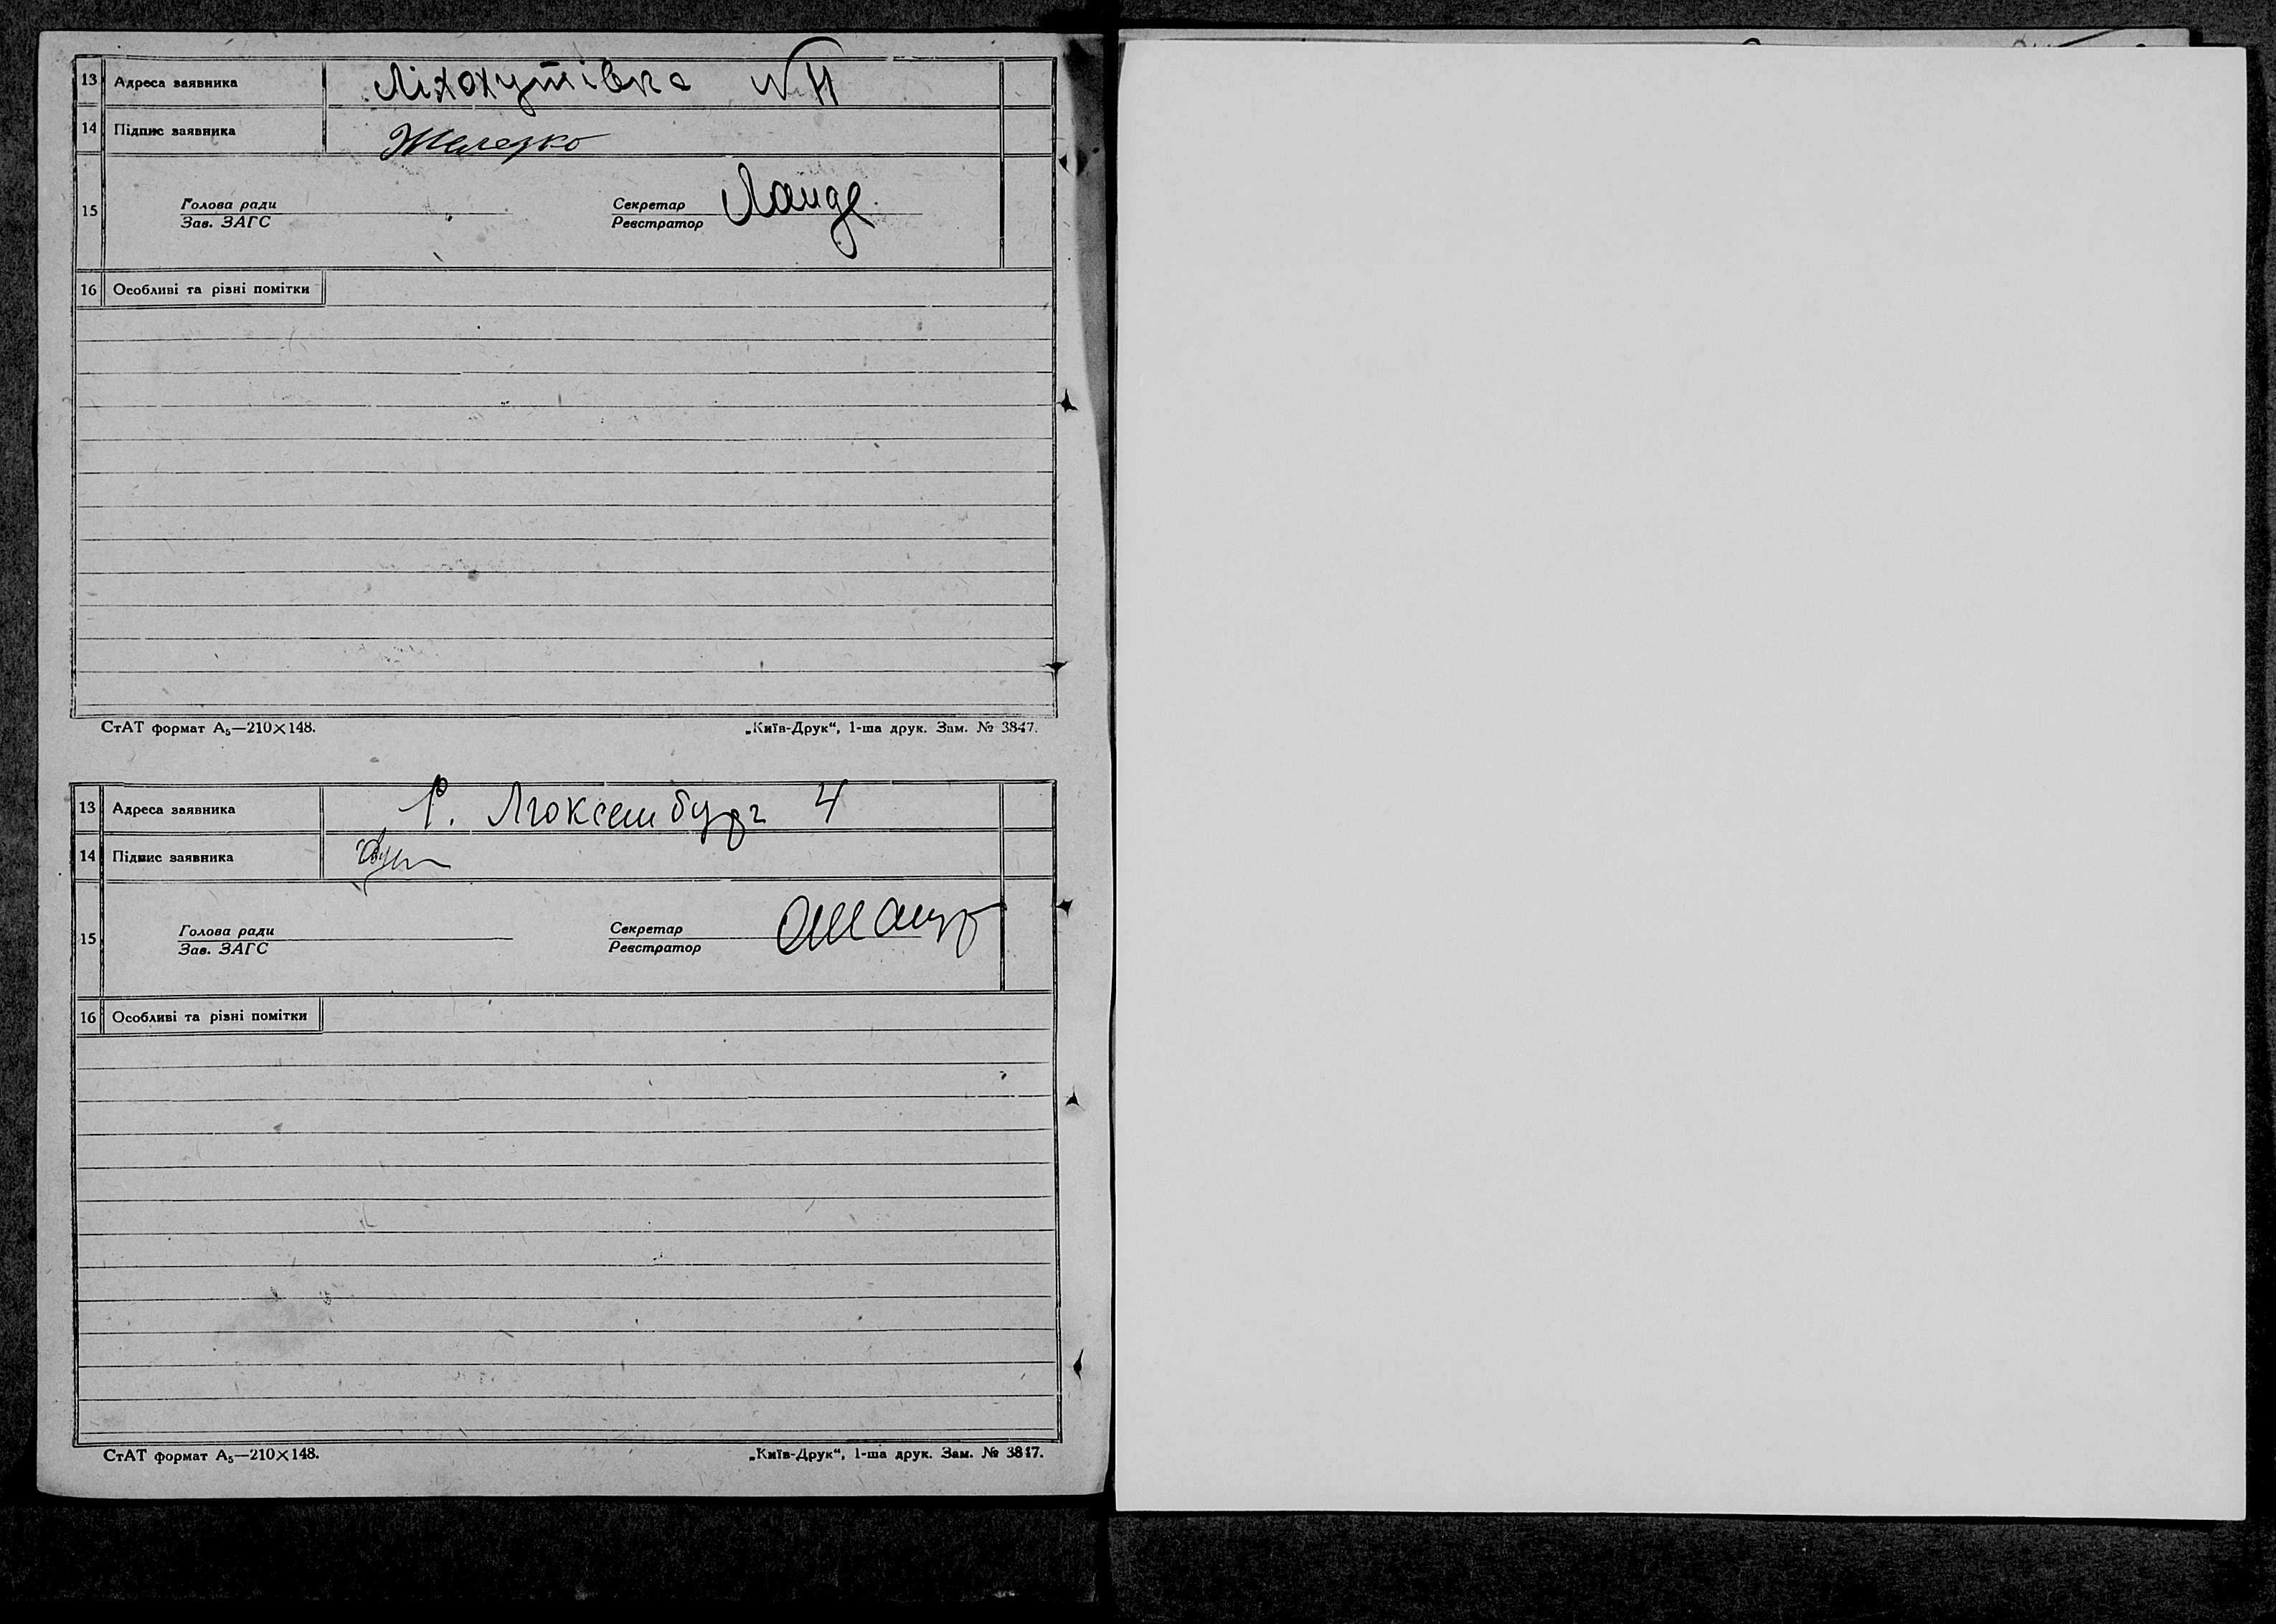 13 Адреса заявника Ліхохутівка N 11
14 Підпис заявника Железко
15 Голова ради Секретар Ланде
Зав. ЗАГС Реєстратор
16 Особливі та різні помітки
СтАТ формат А₅—210×148. „Київ-Друк“, 1-ша друк. Зам. № 3847.
13 Адреса заявника Р. Люксембург 4
14 Підпис заявника
15 Голова ради Секретар
Зав. ЗАГС Реєстратор
16 Особливі та різні помітки
СтАТ формат А₅—210×148. „Київ-Друк“, 1-ша друк. Зам. № 3847.